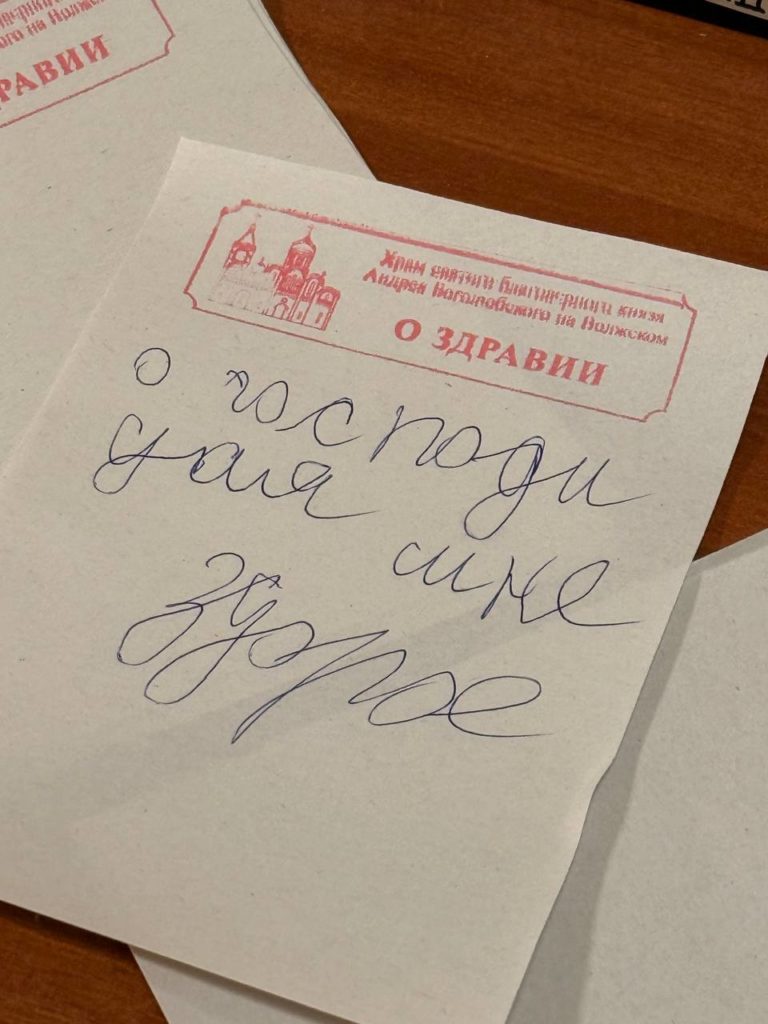 на Волжском
РАВИИ
Храм святого благоверного князя
Андрея Боголюбского на Волжском
О ЗДРАВИИ
о господи
дая
мне
здорое